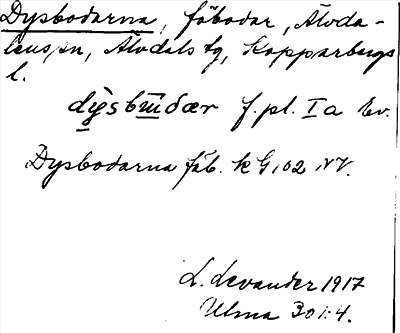 Dysbodarna, fäbodar, Älvda-
lens sn, Älvdals tg, Kopparbergs
l.
dỳsbu̲dær f. pl. I a Ev.
Dysbodarna fäb. k G 102 NV.
L. Levander 1917
Ulma 301:4.